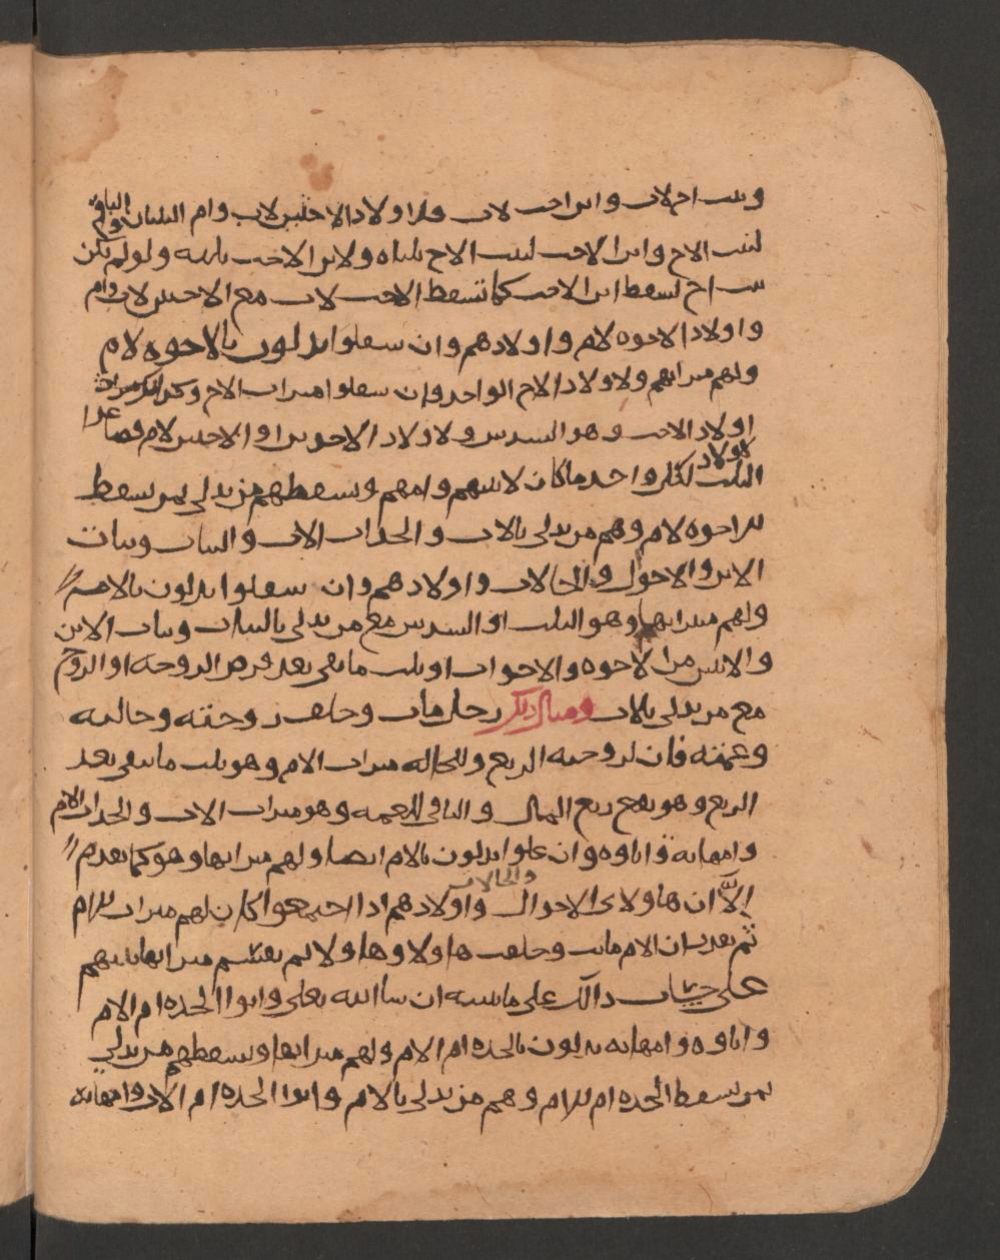 وبنت اخ لاب وابن اخت لاب فلاولاد الاختين لاب وام الثلثان والباقي
لبنت الاخ وابن الاخت لبنت الاخ ثلثاه ولابن الاخت ثلثه ولو لم يكن
بنت اخ لسقط ابن الاخت كما تسقط الاخت لاب مع الاختين لاب وام
واولاد الاخوه لام واولادهم وان سفلوا يدلون بالاخوه لام
ولهم ميراثهم ولاولاد الاخ الواحد وان سفلوا ميراث الاخ وكذلك ميراث
اولاد الاخت وهو السدس ولاولاد الاخوين او الاختين لام فصاعدا
الثلث لاولاد كل واحد ما كان لابيهم وامهم ويسقطهم من يدلي بمن يسقط
للاخوه لام وهم من يدلي بالاب والجدات الاب والبنات وبنات
الابن والاخوال والخالات واولادهم وان سفلوا يدلون بالام
ولهم ميراثها وهو الثلث او السدس مع من يدلي بالبنات وبنات الابن
والاثنين من الاخوه والاخوات او ثلث ما بقي بعد فرض الزوجه او الزوج
مع من يدلي بالاب ومثال ذلك رجل مات وخلف زوجته وخالته
وعمته فان لزوجته الربع وللخاله ميراث الام وهو ثلث ما يبقى بعد
الربع وهو يقع ربع المال والباقي للعمه وهو ميراث الاب والجدات الام
وامهاته واباوه وان علوا يدلون بالام ايضا ولهم ميراثها وهو كما تقدم
الا ان هاولاى الاخوال والخالات واولادهم اذا اجتمعوا كان لهم ميراث للام
ثم تقدر ان الام ماتت وخلفت هاولا وهاولا ثم يقتسم ميراثها بينهم
على حساب ذالك على ما نبينه ان شا الله تعلى وابوا الجده ام الام
واباوه وامهاته يدلون بالجده ام الام ولهم ميراثها ويسقطهم من يدلي
بمن يسقط الجده ام للام وهم من يدلي بالام وابوا الجده ام الاب وامهاته